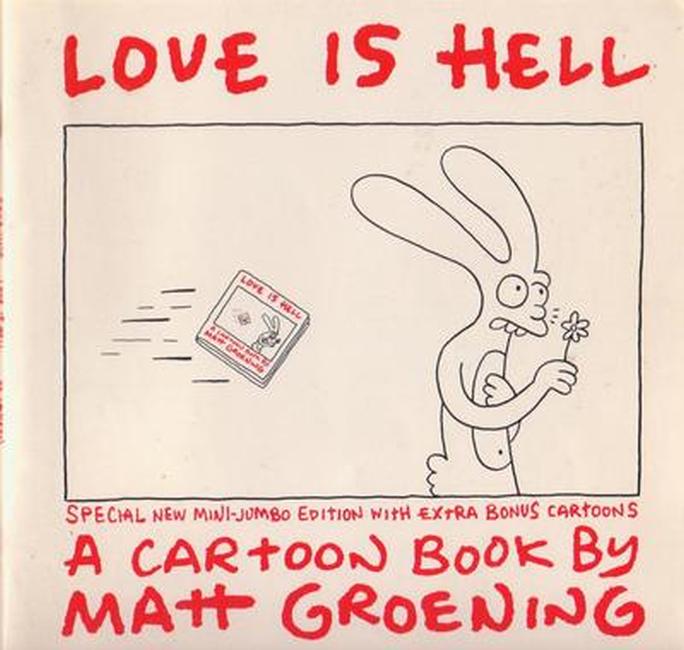 LOVE IS HELL
LOVE IS HELL
A CARTOON BOOK BY
MATT GROENING
SPECIAL NEW MINI-JUMBO EDITION WITH EXTRA BONUS CARTOONS
A CARTOON BOOK BY
MATT GROENING